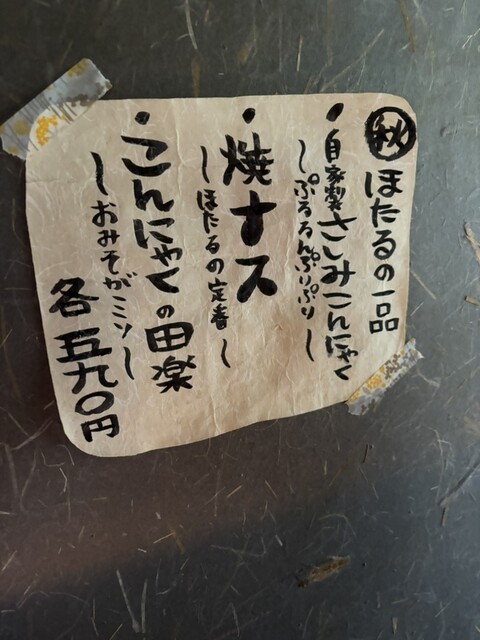 ㊙ ほたるの一品
・自家製さしみこんにゃく
〜ぷるるんぷりぷり〜
・焼ナス
〜ほたるの定番〜
・こんにゃくの田楽
〜おみそがミソ〜
各五九〇円